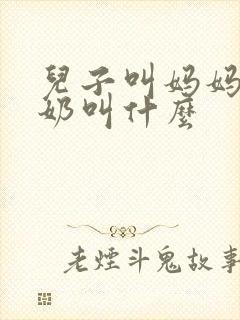 兒子叫妈妈
奶叫什麼
老煙斗鬼故事